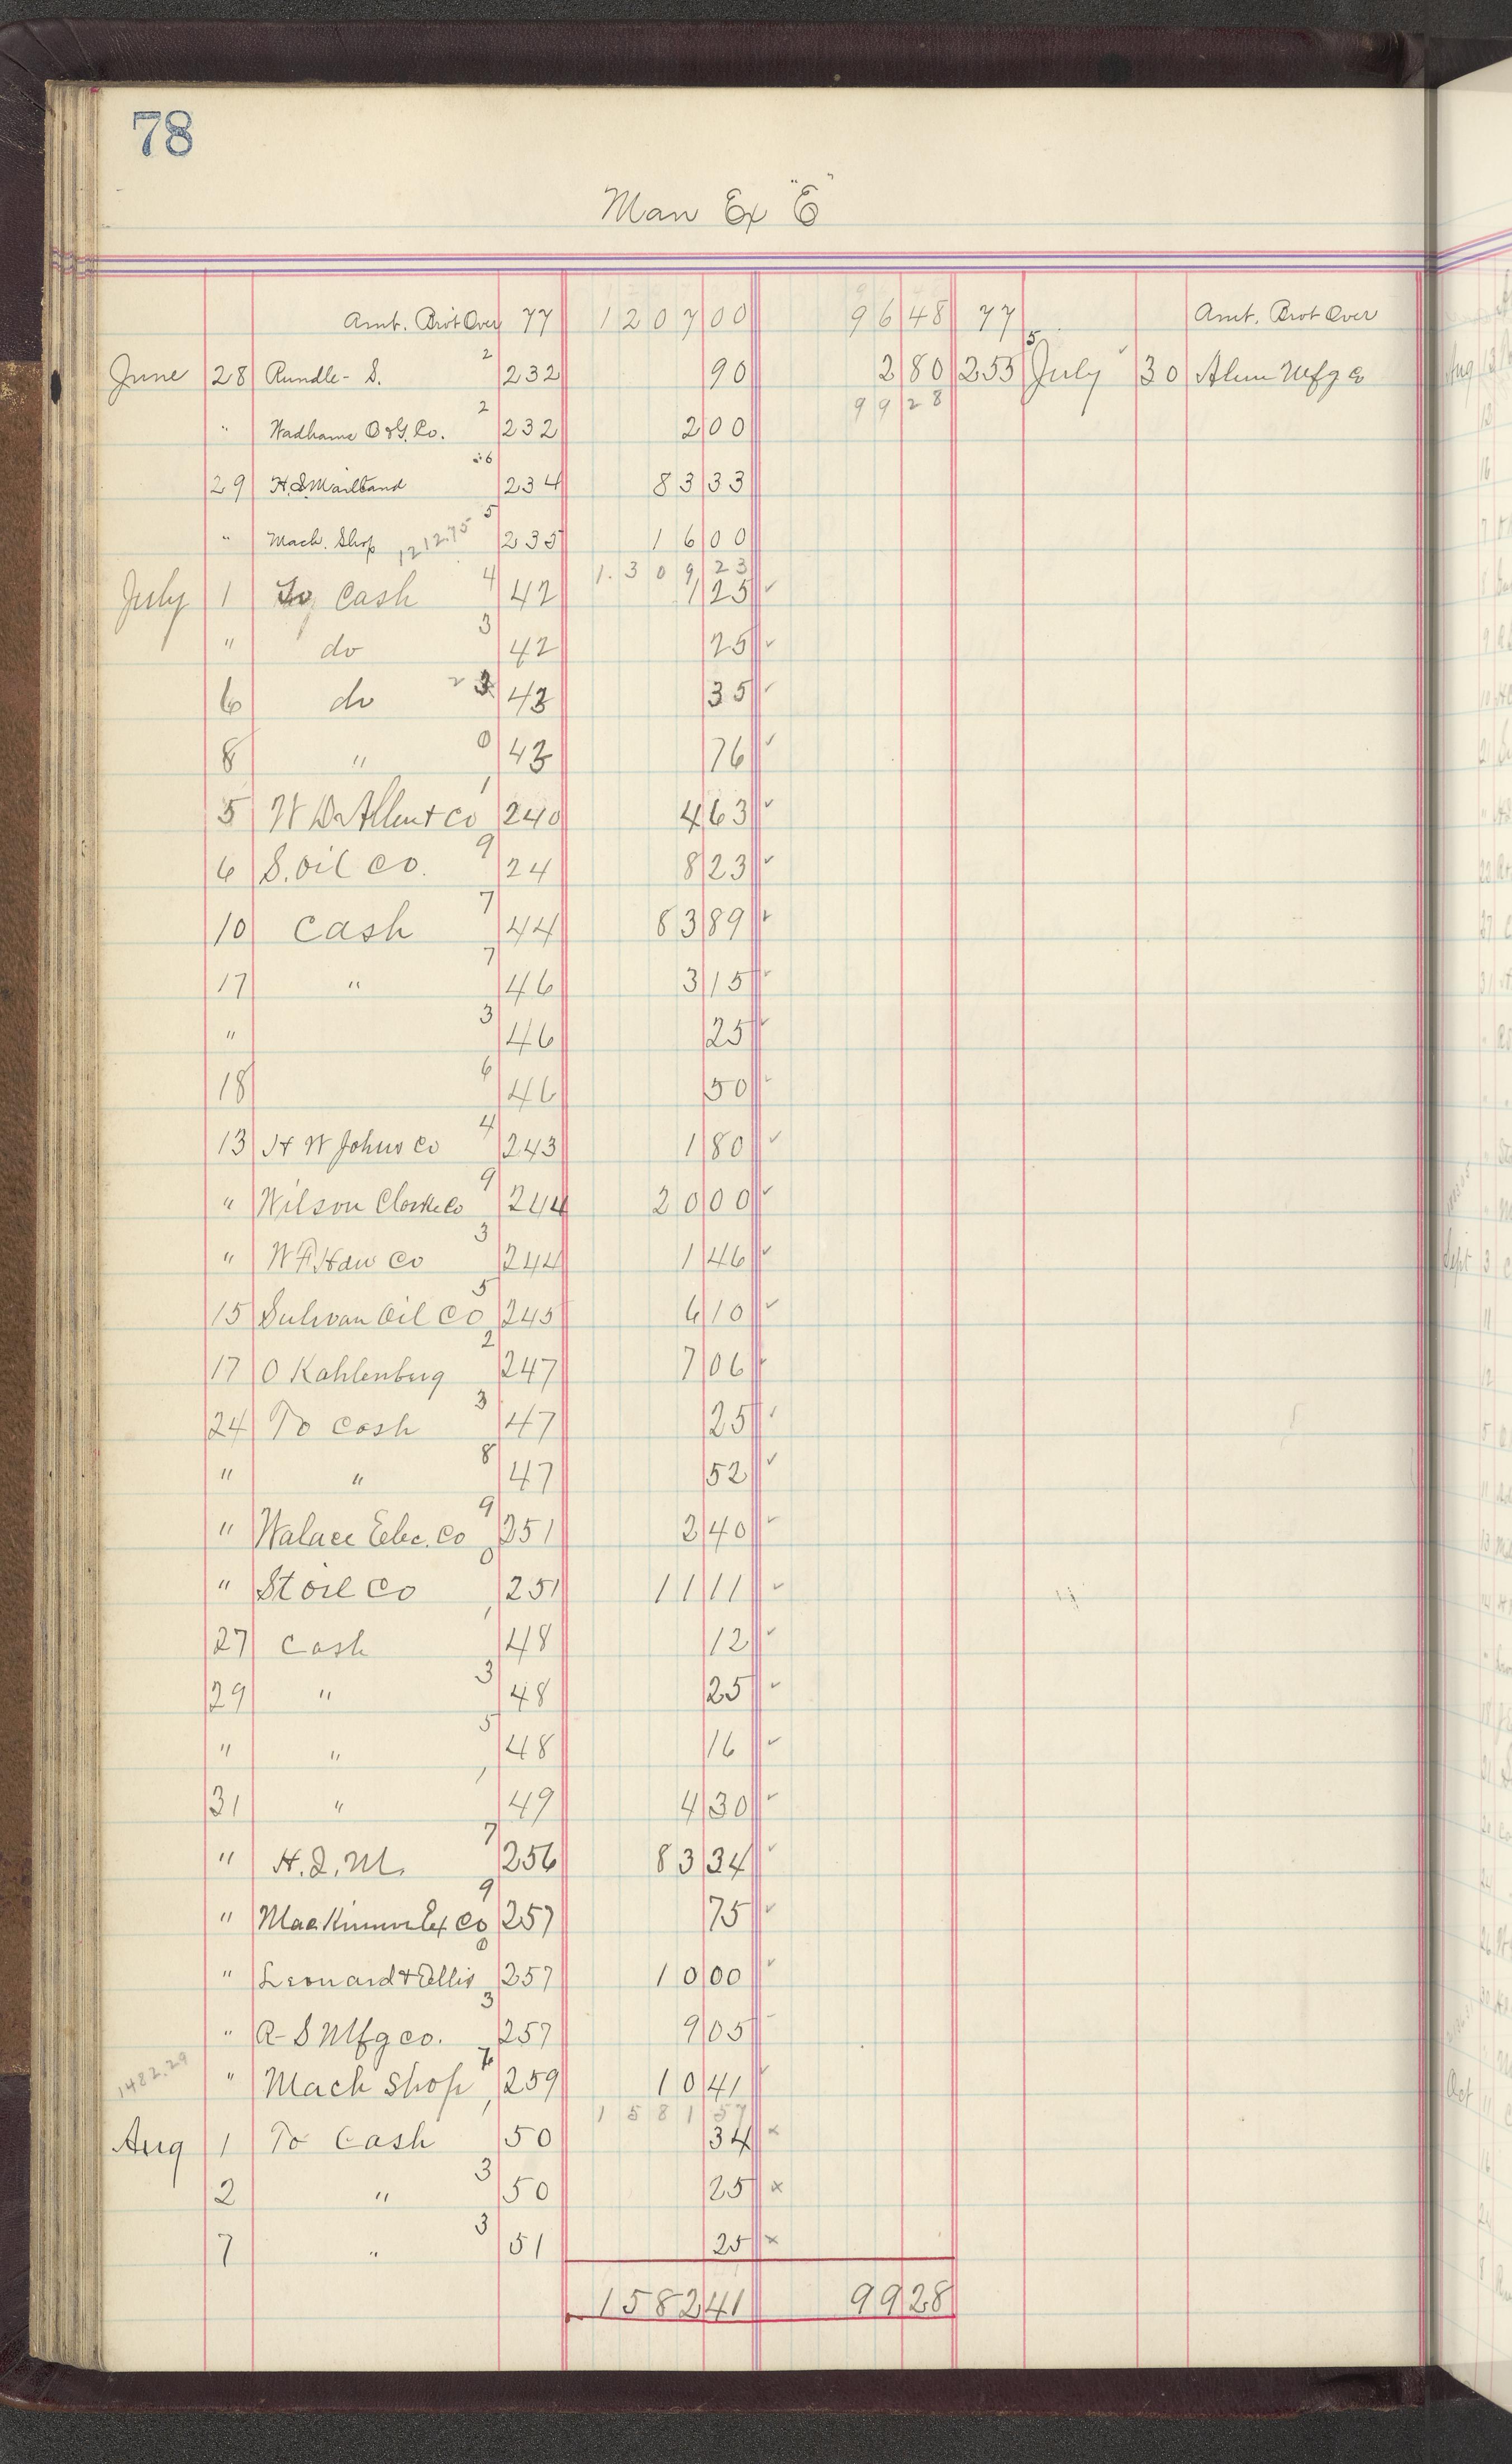 78
Man Ex "E"
Amt. Brot Over 77 1207 00 96 48 77 Amt. Brot Over
June 28 Rundle - S. 2 232 90 2 80 255 5 July 30 Alum Mfg Co
" Wadhams O & G. Co. 2 232 2 00 99 28
29 H. S. 6 234 83 33
" Mach. Shop 1212.75 5 235 16 00
1.309 23
July 1 To Cash 4 42 1 25
" do 3 42 25
6 do 3 43 35
8 " 0 43 76
5 W D Allen & Co 1 240 4 63
6 S. Oil Co. 9 24 8 23
10 Cash 7 44 83 89
17 " 7 46 3 15
" 3 46 25
18 6 46 50
13 H W Johns Co 4 243 1 80
" Wilson Co 9 244 20 00
" W F Haw Co 3 244 1 46
15 Sulivan Oil Co 5 245 6 10
17 O Kahlenburg 2 247 7 06
24 To Cash 3 47 25
" " 8 47 52
" Walace Elec. Co 9 251 2 40
" St Oil Co 0 251 11 11
27 Cash 1 48 12
29 " 3 48 25
" " 5 48 16
31 " 1 49 4 30
" H. I. M. 7 256 83 34
" Ex Co 9 257 75
" Leonard & Ellis 0 257 10 00
" A-S Mfg Co. 3 257 9 05
1482.29 " Mach Shop 7 259 10 41
1581 57
Aug 1 To Cash 1 50 34 x
2 " 3 50 25 x
7 " 3 51 25 x
1582 41 99 28